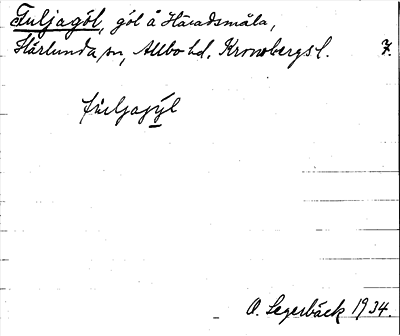 Fuljagöl, göl å Håradsmåla,
Härlunda sn, Allbo hd. Kronobergs l. 7.
fúljagýl
O. Legerbäck 1934.